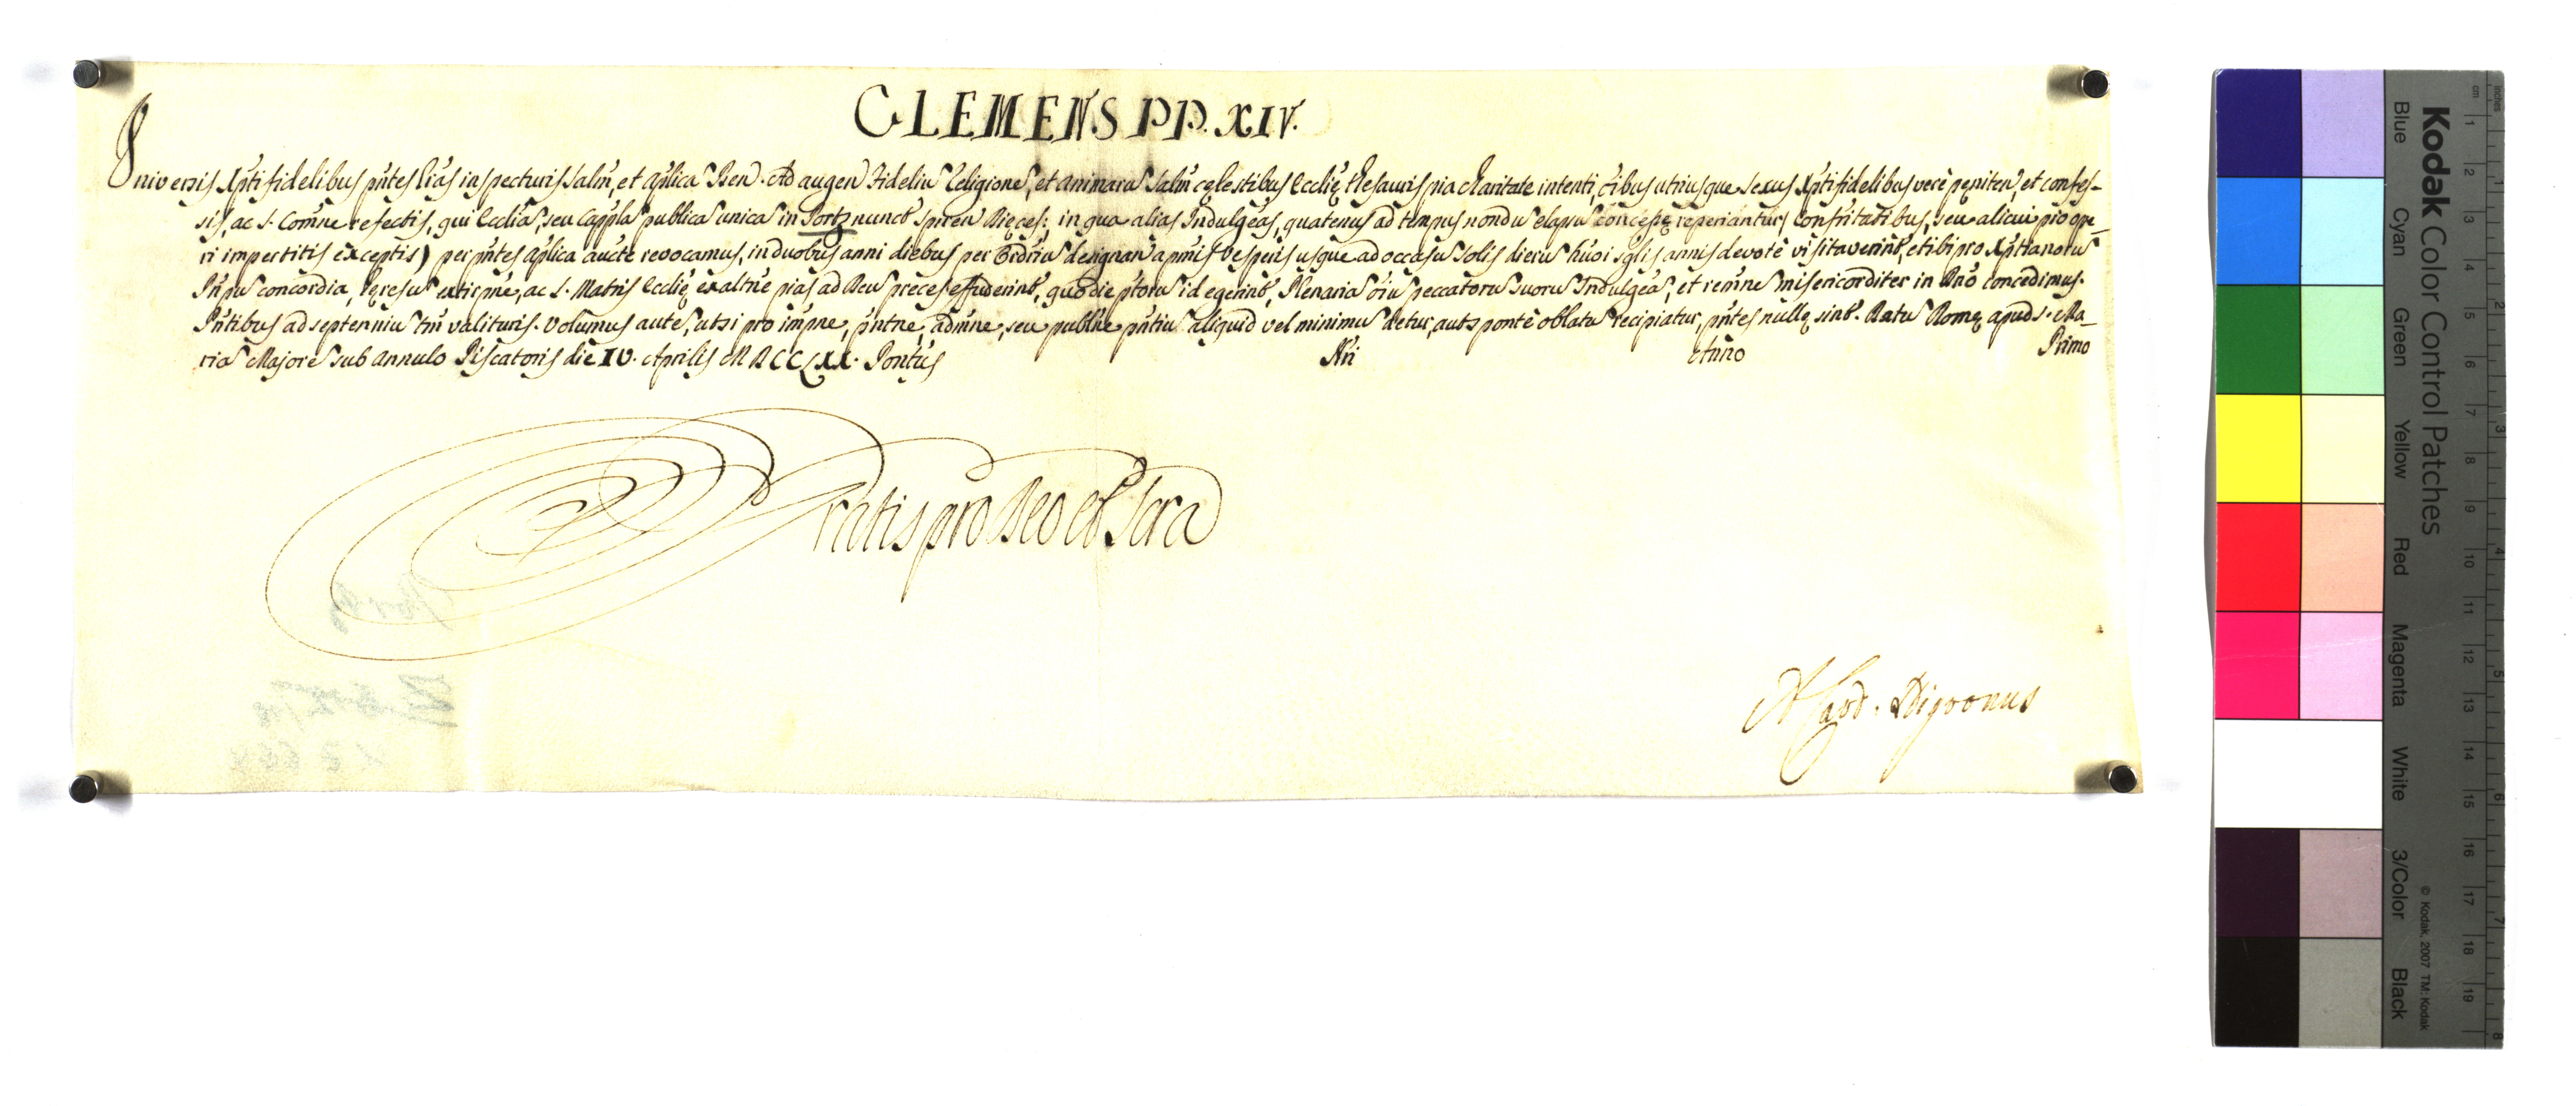 CLEMENS PP. XIV.
Universis Xpti fidelibus pñtes Lras inspecturis Salm, et aplica Ben. Ad augen Fideliu Religione, et animaru salm cęlestibus Ecclię thesauris pia charitate intenti, oibus utriusque sexus Xpti fidelibus vere pęniten, et confes-
sis, ac S. Comne refectis, qui Eccliã, seu Cappla publica unica in Portz nuncŧ Spiren Dięces: in qua alias Indulgeãs, quatenus ad tempus nondu elapsu concesse reperiantur, Confritatibus, seu alicui pio ope-
ri impertitis exceptis) per pñtes aplica aucte revocamus, in duobus anni diebus per Ordriu designan a primis vesperis usque ad occasu solis dieru huõi sglis annis devote visitaverint, et ibi pro Xptianoru
Inpu concordia, hęresu extirpne, ac S. Matris Ecclię exaltne pias ad Deu preces effuderint, quo die ptoru id egerint, Plenaria oiu peccatoru suoru Indulgeã, et remne misericorditer in Dno concedimus.
Pñtibus ad septenniu tm valituris. Volumus aute, ut si pro impne, pñtne, admne, seu publne pntiu aliquid vel minimu detur, aut sponte oblatu recipiatur, pñtes nullę sint. Datu Romę apud S. Ma-
ria Majore sub Annulo Piscatoris die IV. Aprilis MDCCLXX. Pontus Nri Anno Primo
Gratis pro Deo et Scra
A. Card. Nigronus
Kodak Color Control Patches
Blue Cyan Green Yellow Red Magenta White 3/Color Black
© Kodak, 2007 TM: Kodak
cm 1 2 3 4 5 6 7 8 9 10 11 12 13 14 15 16 17 18 19
inches 1 2 3 4 5 6 7 8